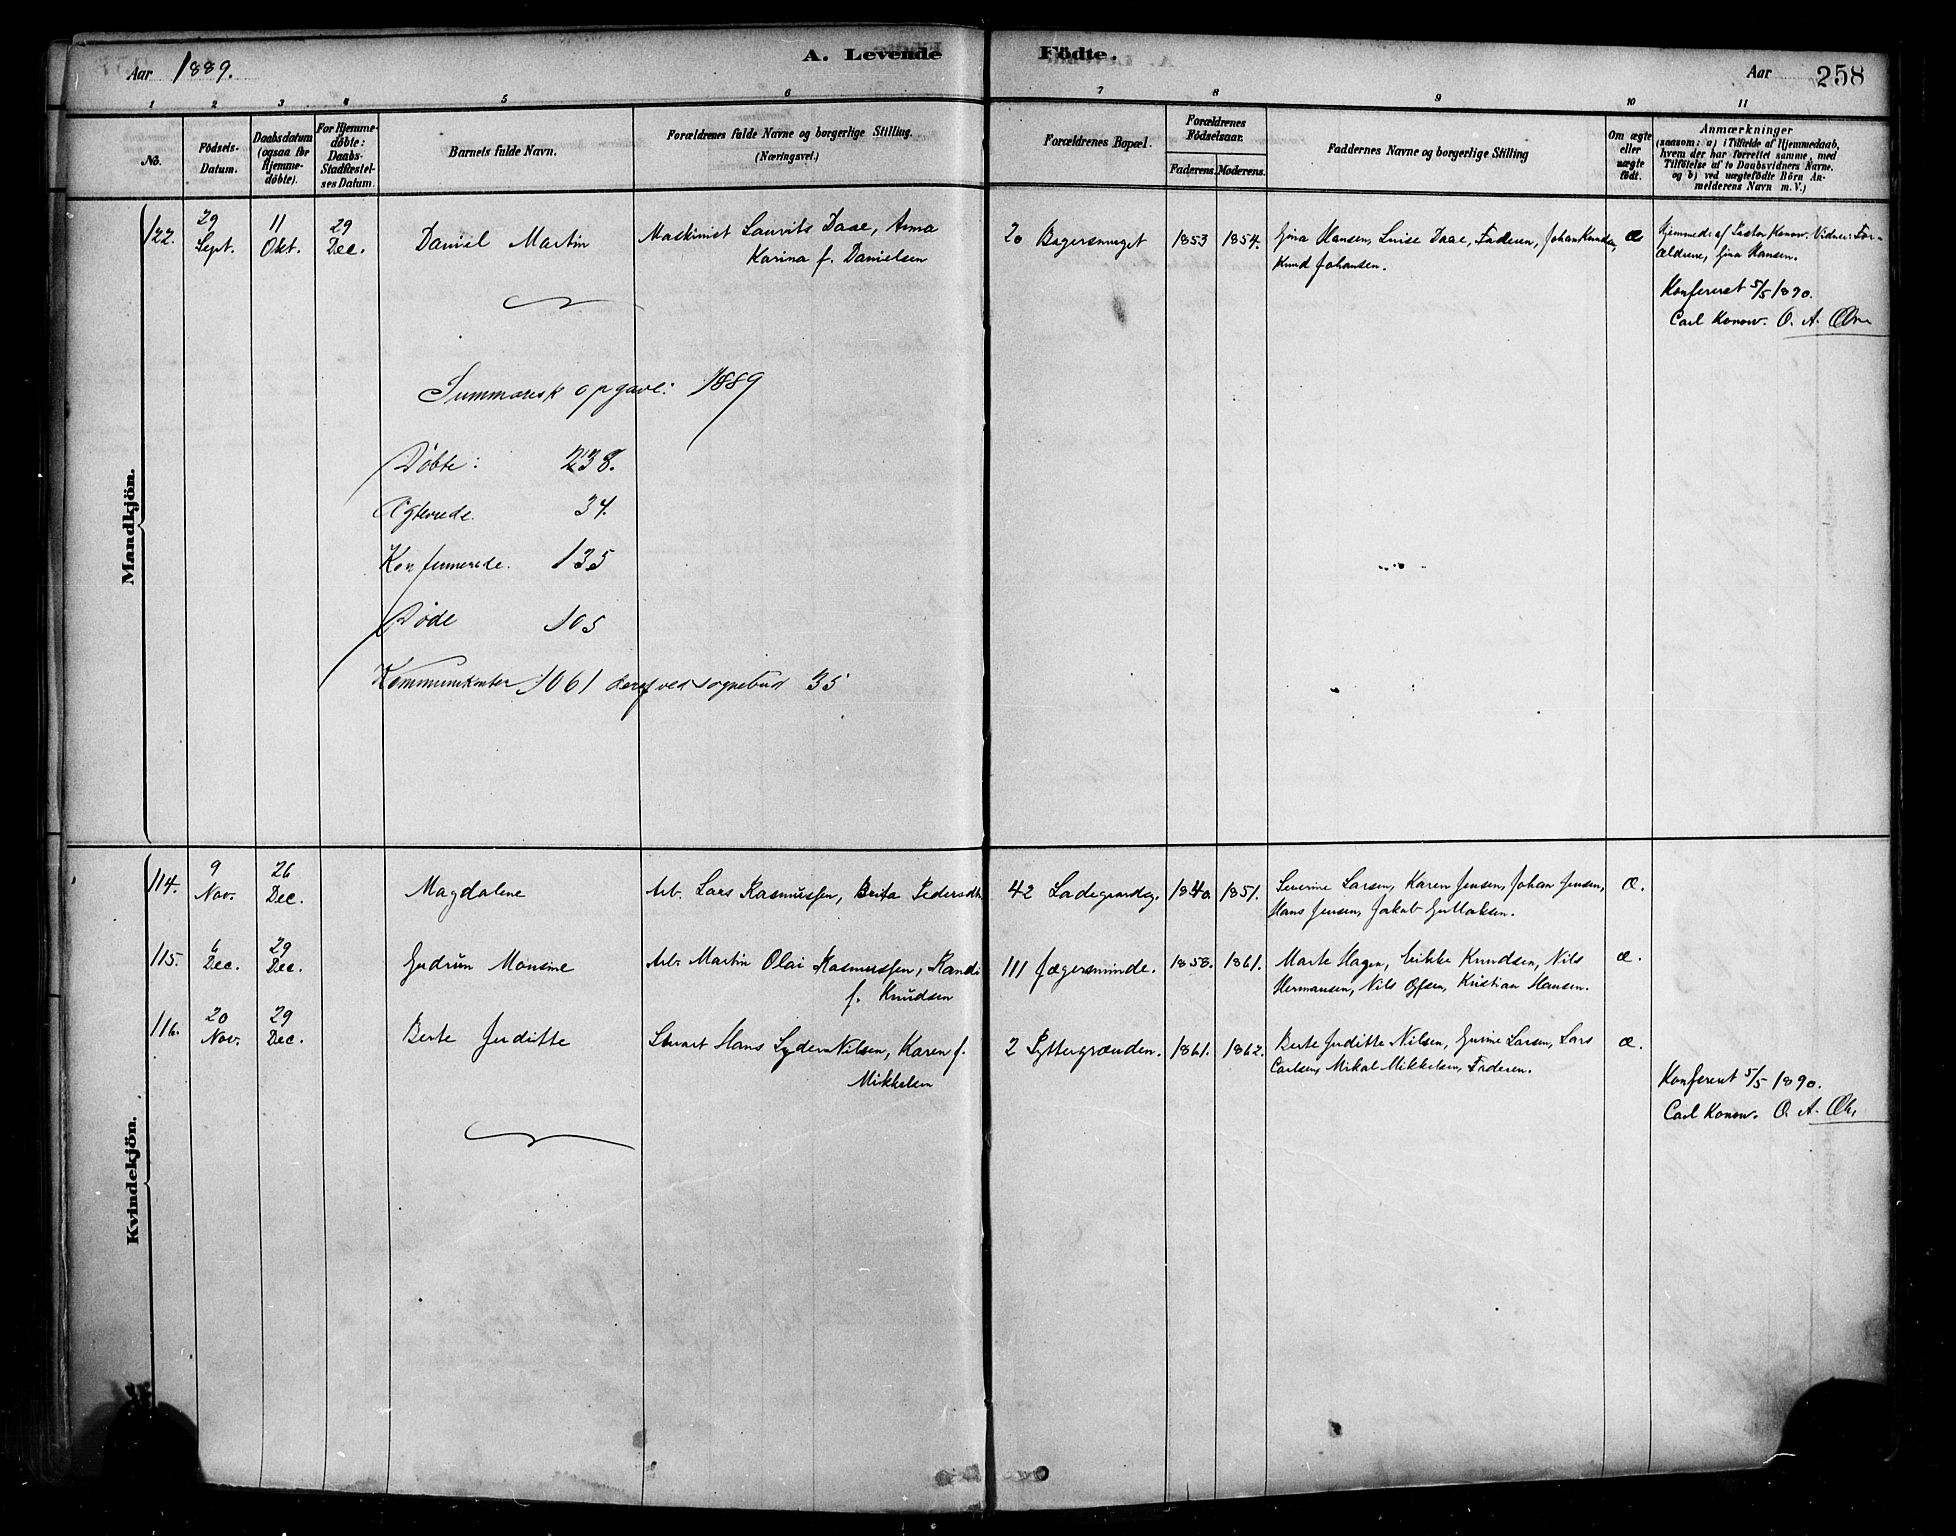 Aar 1889.
A. Levende
Födte.
Aar
258
1 2 3 4 5 6 7 8 9 10 11
No.
Födsels-
Datum.
Daabsdatum
(ogsaa for
Hjemme-
döbte).
For Hjemme-
döbte:
Daabs-
Stadfæstel-
ses Datum.
Barnets fulde Navn.
Forældrenes fulde Navne og borgerlige Stilling.
(Næringsvei.)
Forældrenes Bopæl.
Forældrenes
Födselsaar.
Faderens. Moderens.
Faddernes Navne og borgerlige Stilling
Om ægte
eller
uægte
födt.
Anmærkninger
(saasom: a) i Tilfælde af Hjemmedaab,
hvem der har forrettet samme, med
Tilföielse af to Daabsvidners Navne.
og b) ved uægtefödte Börn An-
melderens Navn m. V.)
Mandkjön.
122. 29 Sept. 11 Okt. 29 Dec. Daniel Martin Maskinist Laurits Daae, Anna
Karina f. Danielsen
20 Bagersmuget 1853 1854. Gina Hansen, Luise Daae, Faderen, Johan Knudsen,
Knud Johansen.
Æ
Hjemmed: af Pastor Konow. Vidner: For-
ældrene, Gina Hansen.
Konfereret 5/5 1890.
Carl Konow. O. A.
Summarisk opgave: 1889
Döbte: 238.
Ægteviede. 34.
Konfirmerede. 135
Döde 105
Kommunikanter 1061 deraf ved sognebud 35
Kvindekjön.
114. 9 Nov. 26 Dec. Magdalene Arb. Lars Rasmussen, Brita Pedersdtr. 42 Ladegaardsg. 1840. 1851. Severine Larsen, Karen Jensen, Johan Jensen, Æ.
Hans Jensen, Jakob
115. 6 Dec. 29 Dec. Gudrun Monsine Arb. Martin Olai Rasmussen, Randi
f. Knudsen
111 Jægersminde. 1858. 1861. Marte Hagen, Knudsen, Nils Æ.
Hermansen, Nils Kristian Hansen.
116. 20 Nov. 29 Dec. Berte Juditte Stuart Hans Lyder Nilsen, Karen f.
Mikkelsen
2 Pyttergrænden. 1861. 1862. Berte Juditte Nilsen, Larsen, Lars Æ.
Carlsen, Mikal Mikkelsen, Faderen.
Konfereret 5/5 1890.
Carl Konow. O. A.